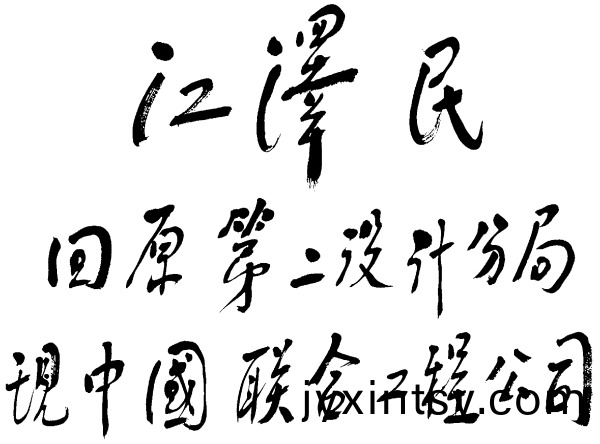 江澤民
回原第二设计分局
現中國联合工程公司
jvxintsy.com